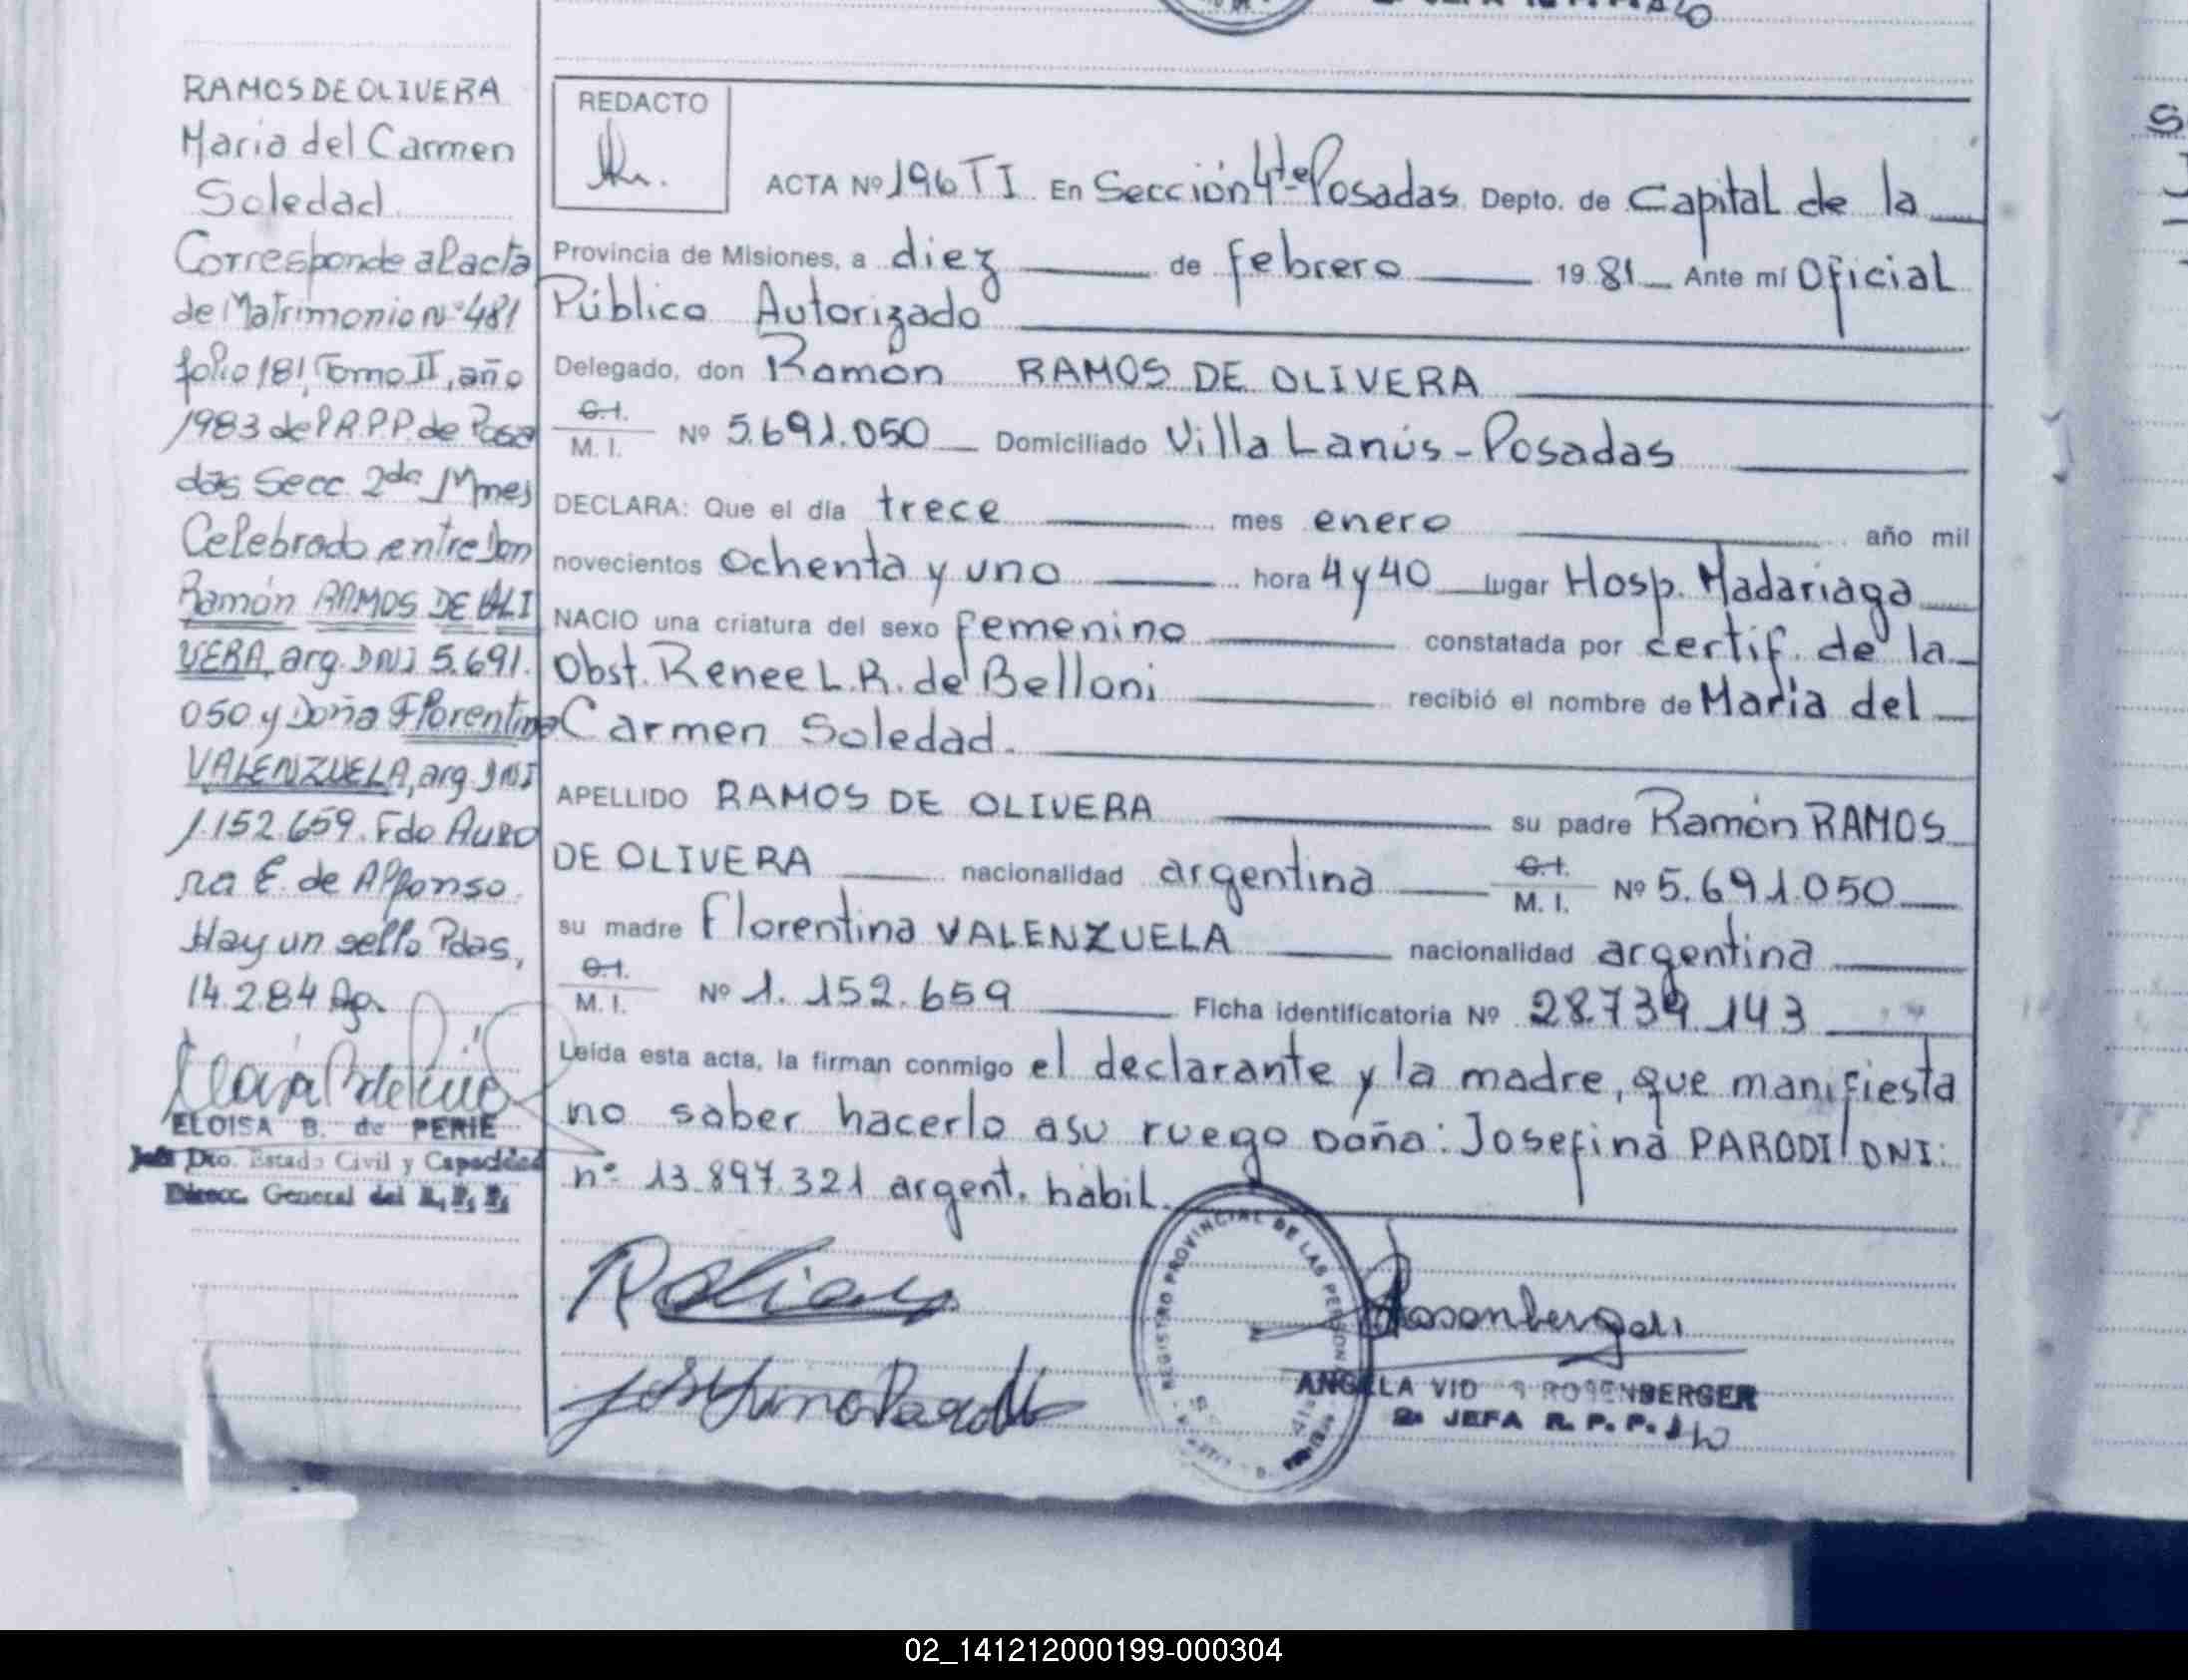 RAMOS DE OLIVERA
Maria del Carmen
Soledad
Corresponde al acta
de Matrimonio Nº 481
folio 181, Tomo II, año
1983 del R.P.P. de Posa
das Secc. 2da Mnes
Celebrado entre Don
Ramón RAMOS DE OLI
VERA, arg. DNI 5.691.
050 y Doña Florentina
VALENZUELA, arg. DNI
1.152.659. Fdo Auro
ra E. de Alfonso.
Hay un sello Pdas,
14.2.84
ELOISA B. de PERIE
Jefe Dto. Estado Civil y Capacidad
Direcc. General del R. P. P.
REDACTO
ACTA Nº 196 TI En Sección 4ta Posadas Depto. de Capital de la
Provincia de Misiones, a diez de febrero 19 81 Ante mí Oficial
Público Autorizado
Delegado, don Ramón RAMOS DE OLIVERA
C.I.
M. I. Nº 5.691.050 Domiciliado Villa Lanús - Posadas
DECLARA: Que el día trece mes enero año mil
novecientos ochenta y uno hora 4 y 40 lugar Hosp. Madariaga
NACIO una criatura del sexo femenino constatada por certif. de la
Obst. Renee L.R. de Belloni recibió el nombre de María del
Carmen Soledad.
APELLIDO RAMOS DE OLIVERA su padre Ramón RAMOS
DE OLIVERA nacionalidad argentina C.I. M. I. Nº 5.691.050
su madre Florentina VALENZUELA nacionalidad argentina
C.I.
M. I. Nº 1.152.659 Ficha identificatoria Nº 28.739.143
Leída esta acta, la firman conmigo el declarante y la madre, que manifiesta
no saber hacerlo a su ruego Doña: Josefina PARODI DNI:
nº 13.897.321 argent. hábil.
REGISTRO PROVINCIAL DE LAS PERSONAS
Josefina Parodi
Rosenberger
ROSENBERGER
2a JEFA R. P. P.
02_141212000199-000304